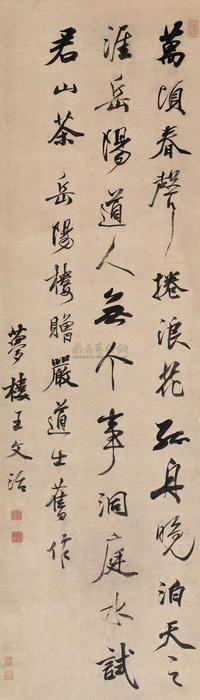 萬頃春聲捲浪花孤舟晚泊天之
涯岳陽道人無个事洞庭水試
君山茶 岳陽樓贈嚴道士舊作
夢樓王文治